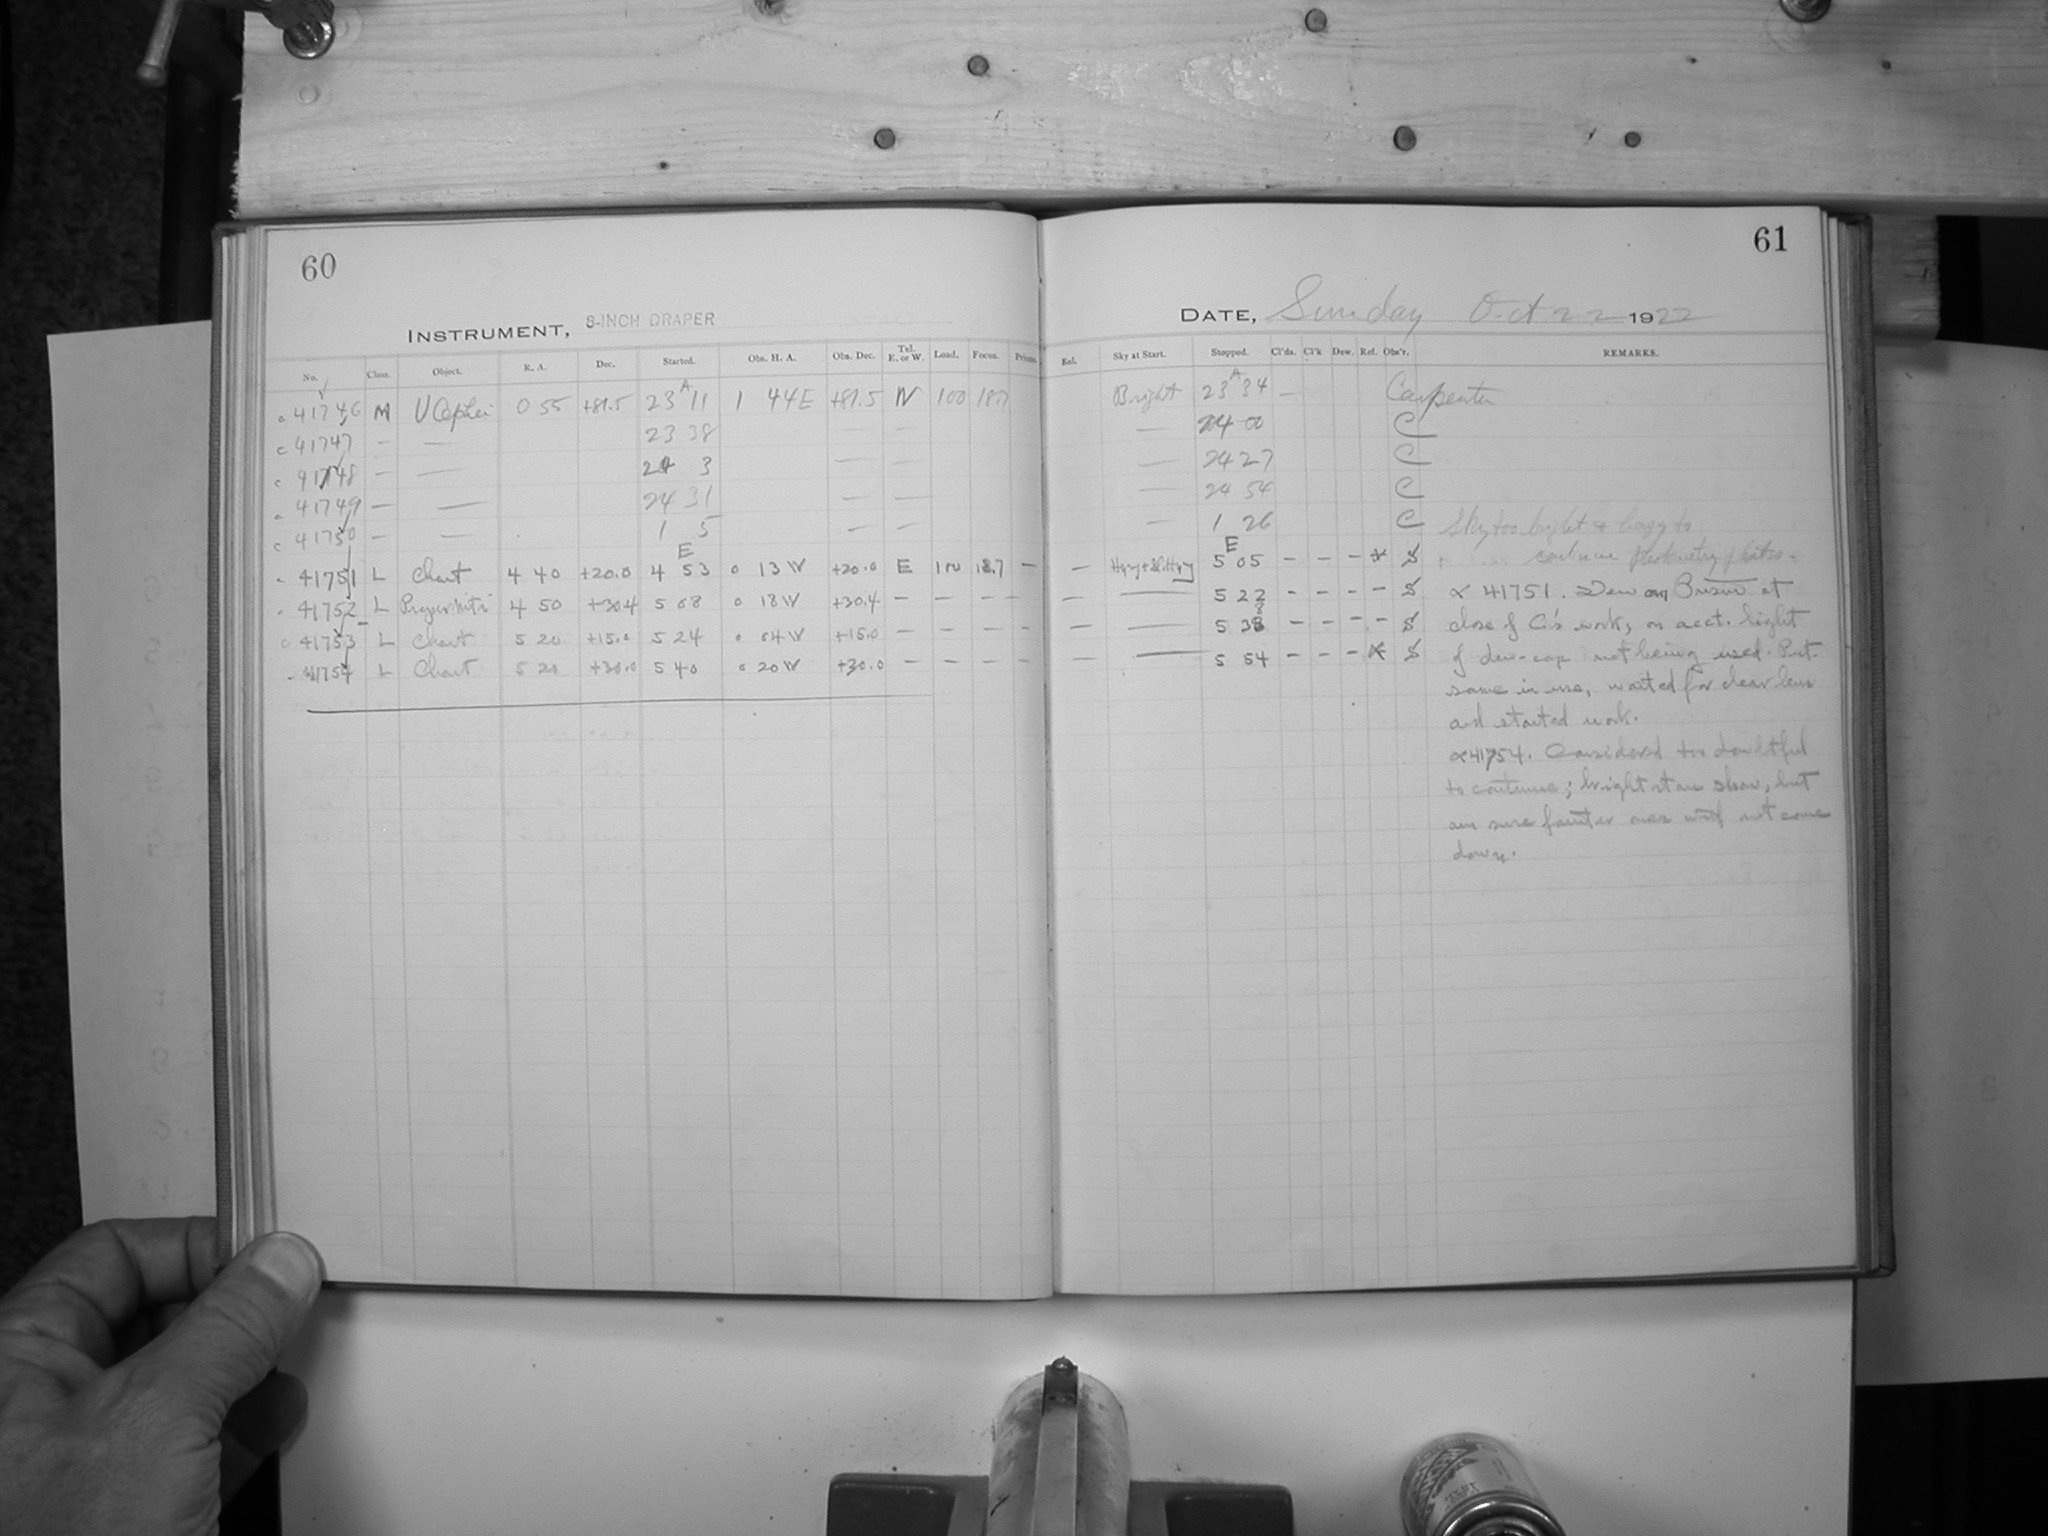 60
61
INSTRUMENT, 8-INCH DRAPER
DATE, Sunday Oct 22 1922
No. Class. Object. R. A. Dec. Started. Obs. H. A. Obs. Dec. Tel. E. or W. Load. Focus. Prisms. Exl. Sky at Start. Stopped. Cl'ds. Cl'k Dew. Ref. Obs'r. REMARKS.
c 41746 M U Cephei 0 55 +81.5 23 A 11 1 44 E +81.5 W 100 18.7 Bright 23 A 34 – Carpenter
c 41747 – — 23 38 — — — 24 00 C
c 41748 – — 24 3 — — — 24 27 C
c 41749 — — 24 31 — — — 24 54 C
c 41750 – — 1 5 — — – 1 26 C Sky too bright & hazy to
continue
c 41751 L Chart 4 40 +20.0 E 4 53 0 13 W +20.0 E 18.7 – – E 5 05 – – – * S
41752 L 4 50 +30.4 5 08 0 18 W +30.4 – – – – — — 5 22 – – – – S α 41751. Dew on Prism at
c 41753 L Chart 5 20 +15.0 5 24 0 04 W +15.0 – – – – — — 5 38 – – – – S close of C's work, on acct. light
41754 L Chart 5 20 +30.0 5 40 0 20 W +30.0 – – – – — — 5 54 – – – * S of dew-cap not being used. Put
same in use, waited for clear lens
and started work.
α 41754. Considered too doubtful
to continue; bright stars show, but
am sure fainter ones not come
down.